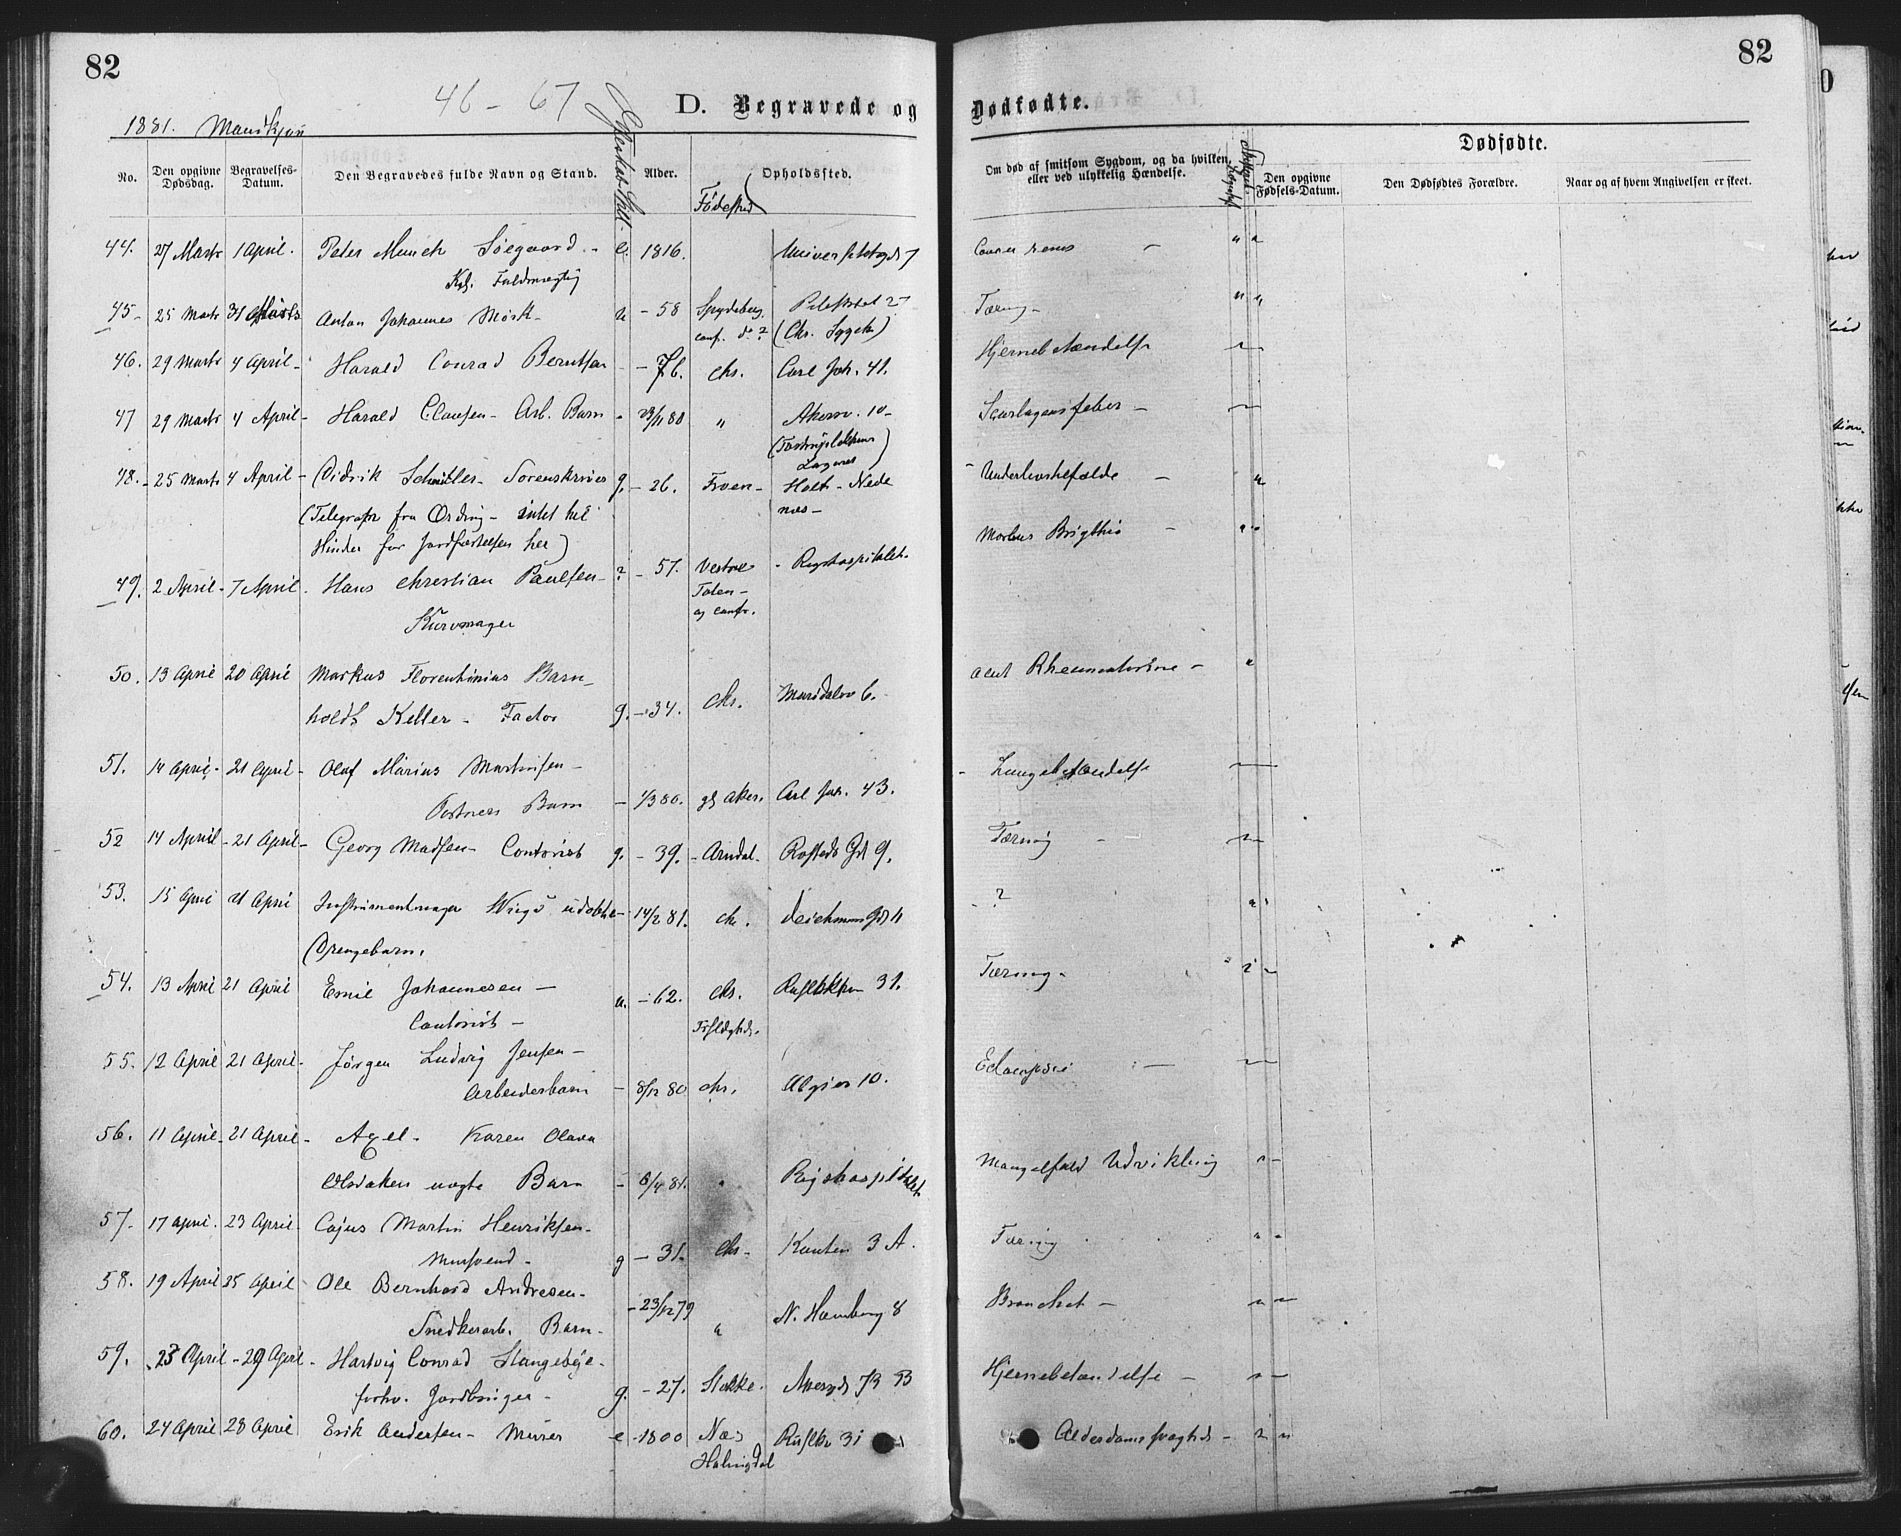 82
82
46 - 67
D. Begravede og Dødfødte.
1881. Mandkjøn
Dødfødte.
No. Den opgivne Dødsdag. Begravelses-Datum. Den Begravedes fulde Navn og Stand. Alder. Fødested Opholdssted. Om død af smitsom Sygdom, og da hvilken, eller ved ulykkelig Hændelse. Den opgivne Fødsels-Datum. Den Dødfødtes Forældre. Naar og af hvem Angivelsen er skeet.
44. 27 Marts 1 April. Peter Munch Søegaard - e. 1816. Universitetsgd 7
Kgl. Fuldmægtig
45- 25 Marts 31 Marts Anton Johannes Mørk - u - 58 Spydeberg Pilestræt 27 Tæring -
conf. do? (Chr. Sygeh)
46. 29 Marts 4 April - Harald Conrad Berntsen - 76. Chr. Carl Joh. 41. Hjernebetændelse
47 29 Marts 4 April - Harald Clausen - Arb. Barn - 23/11 80 " Akersv. 10 - Skarlagensfeber -
48. - 25 Marts 4 April - Didrik Schnitler - Sorenskriver g. - 26. Froen - Holt - Nedenæs - Underlivstilfælde -
(Telegrafr fra Ording - intet til
Hinder for Jordfæstelsen her)
49. 2 April - 7 April. Hans Christian Paulsen - ? - 57. Vestre Toten - og conf. - Rigshospitalet. Morbus Brigthii -
Kurvmager
50. 13 April 20 April Markus Florentinius Barn-
holdt Keller - Factor g. - 34. Chr. Maridalsv 6. acut Rheumatisme -
51. 14 April - 21 April - Olaf Marius Martinsen -
Portners Barn - 1/3 80. gl Aker. Carl Joh. 43. - Lungebetændelse
52 14 April - 21 April - Georg Madsen - Contorist g. - 39. - Arndal - Rosteds Gd 9. Tæring -
53. 15 April 21 April Instrumentmager Wiigs udøbte - 14/2 81. chr. Deichmans Gd 11 - ?
Drengebarn.
54. 13 April 21 April Emil Johannesen - u. - 62. Chr. Rusløkkv 31. Tæring -
Contorist -
55. 12 April 21 April - Jørgen Ludvig Jensen -
Arbeidersbarn - 8/12 80 chr. Algier 10. Eclampsi -
56. 11 April - 21 April - Axel - Karen Olava
Olsdatters uægte Barn - 8/4 81. Rigshospitalet Mangelfuld Udvikling
57. 17 April. 23 April - Cajus Martin Henriksen -
Mursvend - g - 31. Chr - Kanten 3 A. Tæring
58. 19 April 25 April Ole Bernhard Andresen -
Snedkerarb. Barn - - 23/12 79 " N. Hamburg 8 Bronchit -
59. 23 April - 29 April - Hartvig Conrad Stangebye -
forhv. Jordbruger - g. - 27. Stokke. Akersgd 73 B Hjernebetændelse -
60. 24 April 28 April Erik Andersen - Murer e - 1800 Næs Rusløkv 31 Alderdomssvaghed -
Halingdal